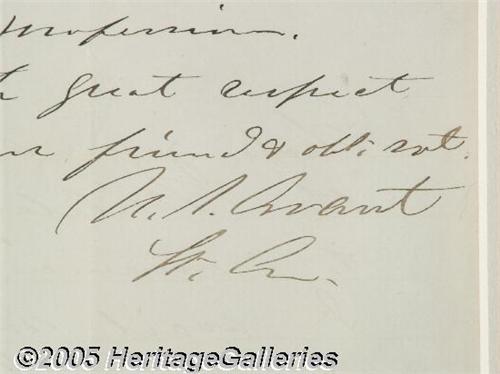 Profession.
great respect
friend & obt. svt.
U. S. Grant
Lt. Gn.
©2005 HeritageGalleries